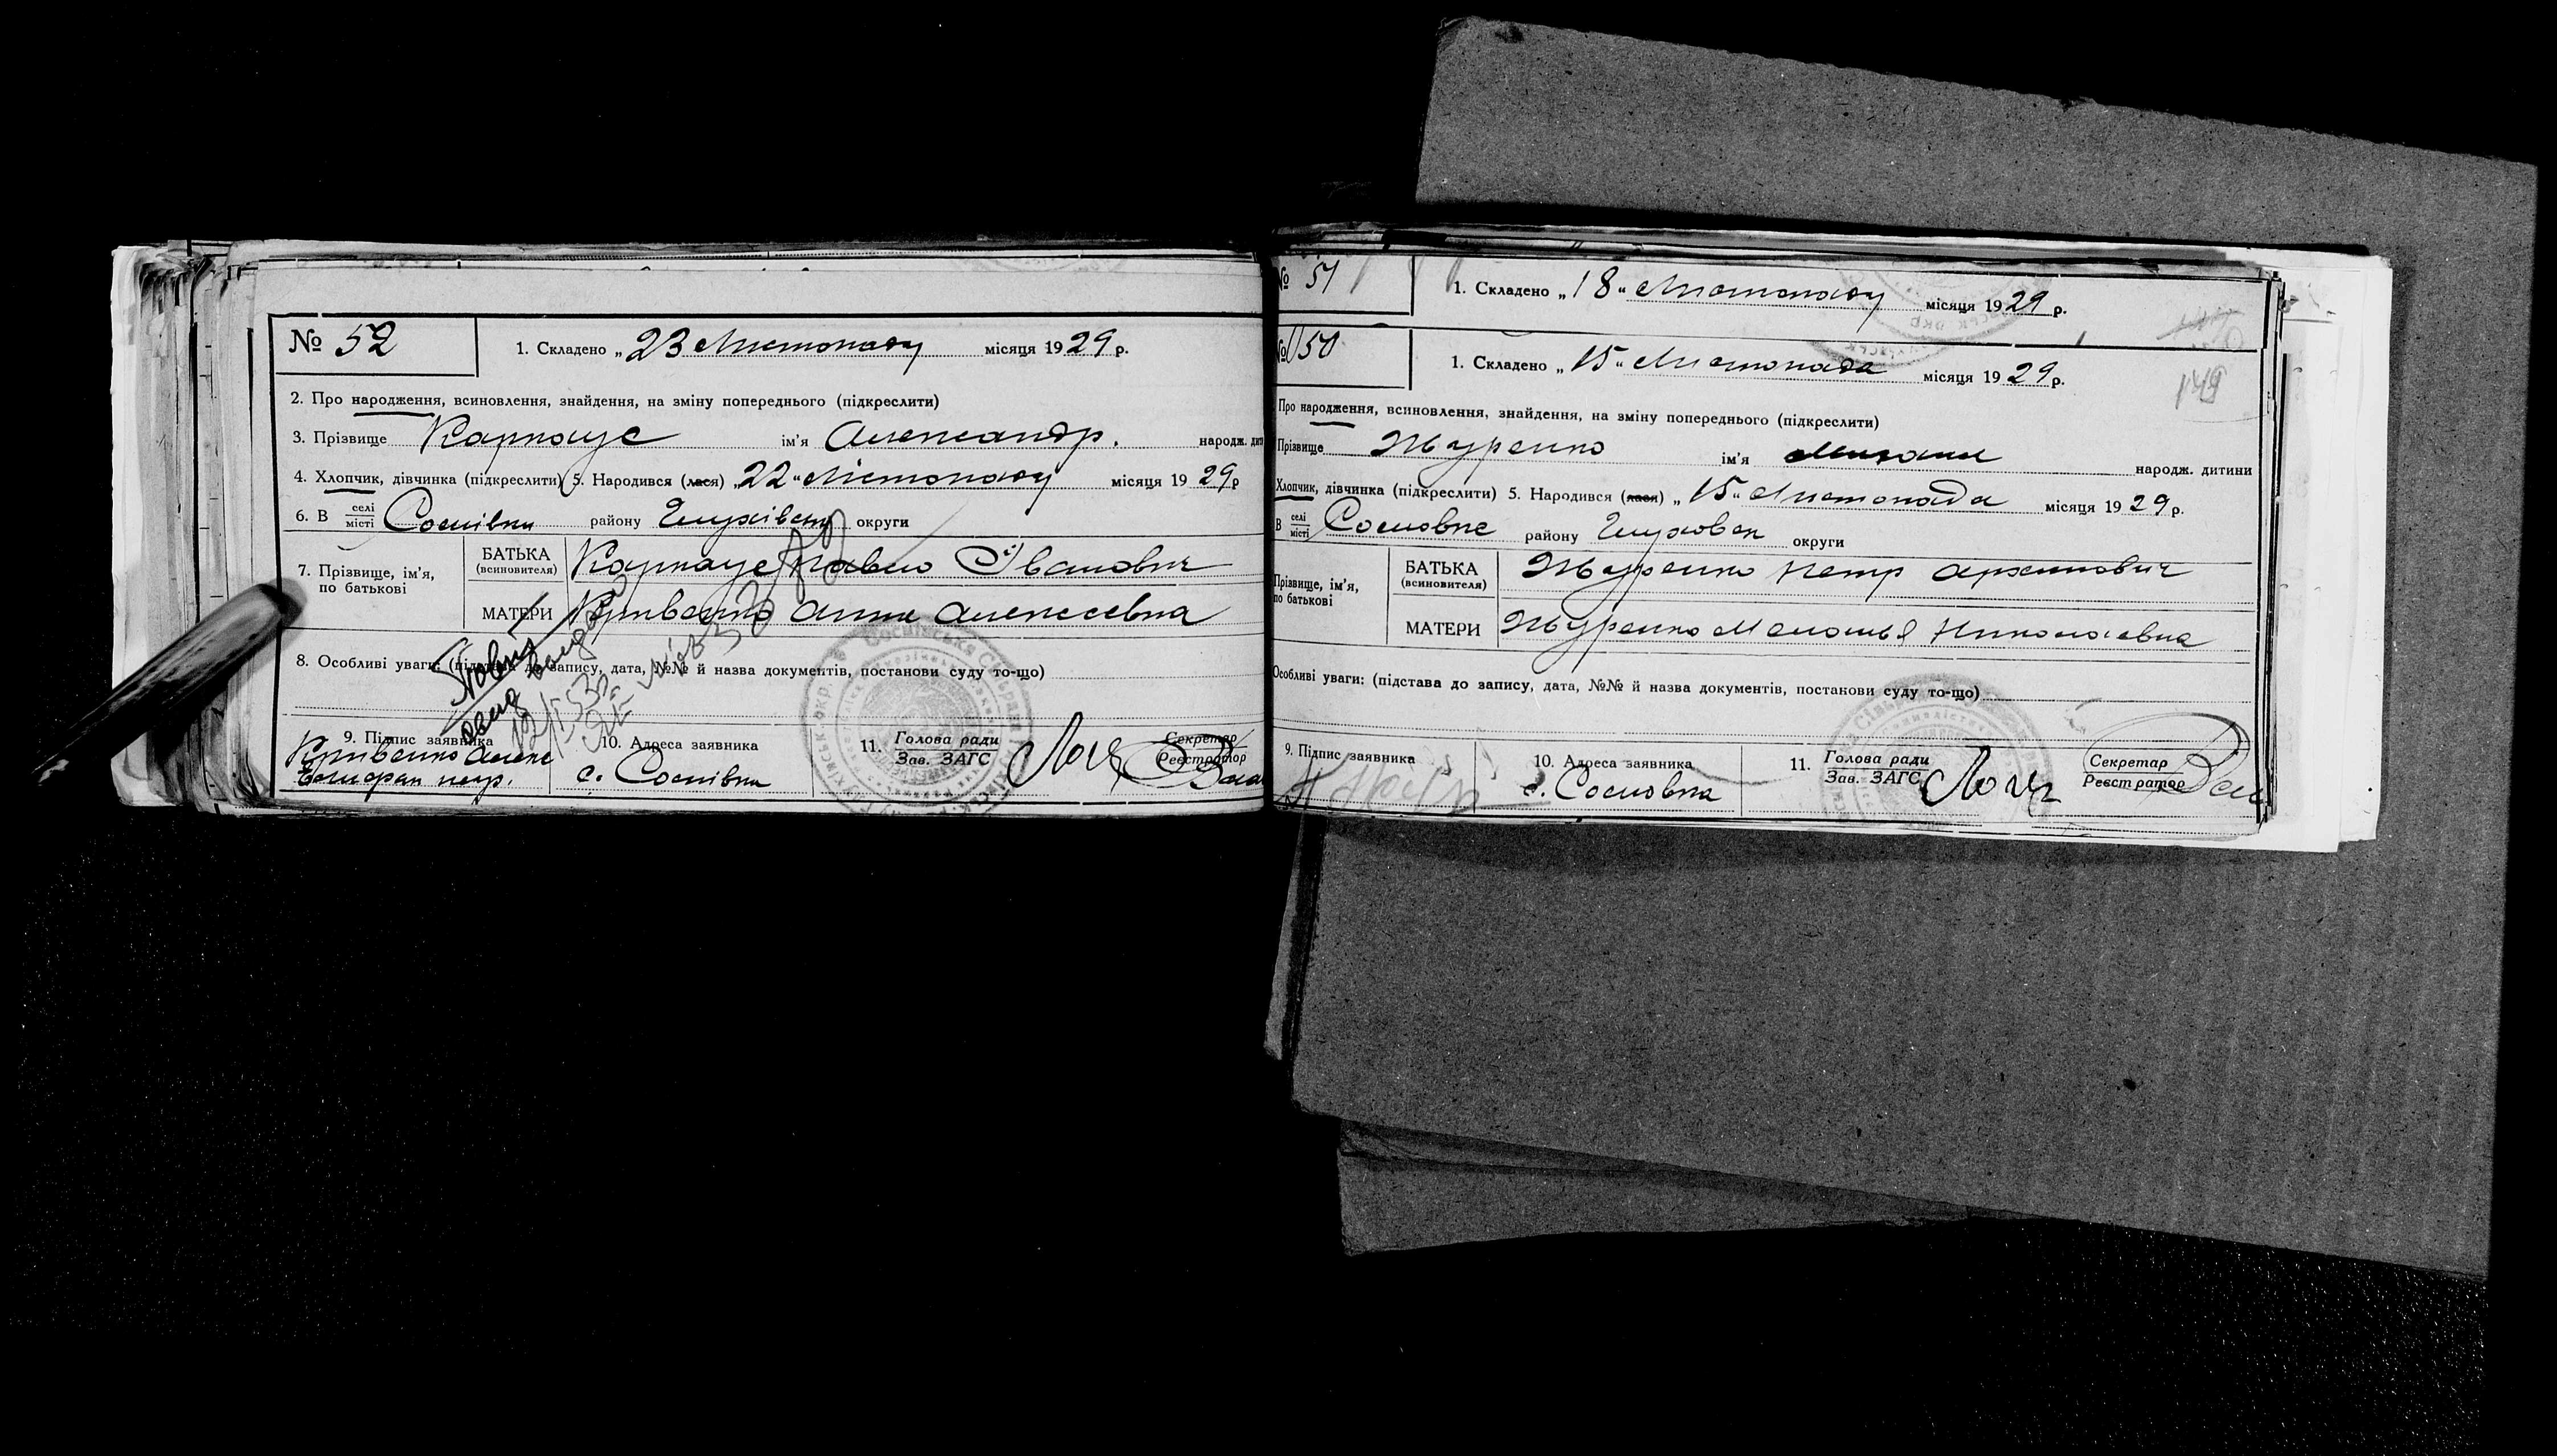 № 52
1. Складено „23 Листопаду місяця 1929 р.
2. Про народження, всиновлення, знайдення, на зміну попереднього (підкреслити)
3. Прізвище Карпоус ім'я Александр. народж. дит
4. Хлопчик, дівчинка (підкреслити) 5. Народився (лася) „22" Лістопаду місяця 1929 р
6. В селі місті Соснівки району Глухівськ округи
7. Прізвище, ім'я, по батькові
БАТЬКА (всиновителя) Карпоус Павло Іванович
МАТЕРИ Кривенко Анна Алексеевна
8. Особливі уваги: (підстава до запису, дата, №№ й назва документів, постанови суду то-що)
9. Підпис заявника
Кривенко
10. Адреса заявника
с. Соснівка
11. Голова ради
Зав. ЗАГС
Секретар
Реєстратор
№ 51
1. Складено „18" Листопаду місяця 1929 р.
№ 50
1. Складено „15" Листопада місяця 1929 р.
149
Про народження, всиновлення, знайдення, на зміну попереднього (підкреслити)
Прізвище Журенко ім'я Михаил народж. дитини
Хлопчик, дівчинка (підкреслити) 5. Народився (лася) „15" Листопада місяця 1929 р.
В селі місті Сосновке району Глуховск округи
Прізвище, ім'я, по батькові
БАТЬКА (всиновителя) Журенко Петр Архипович
МАТЕРИ Журенко Меланья Николаевна
Особливі уваги: (підстава до запису, дата, №№ й назва документів, постанови суду то-що)
9. Підпис заявника
10. Адреса заявника
с. Сосновка
11. Голова ради
Зав. ЗАГС
Секретар
Реєстратор